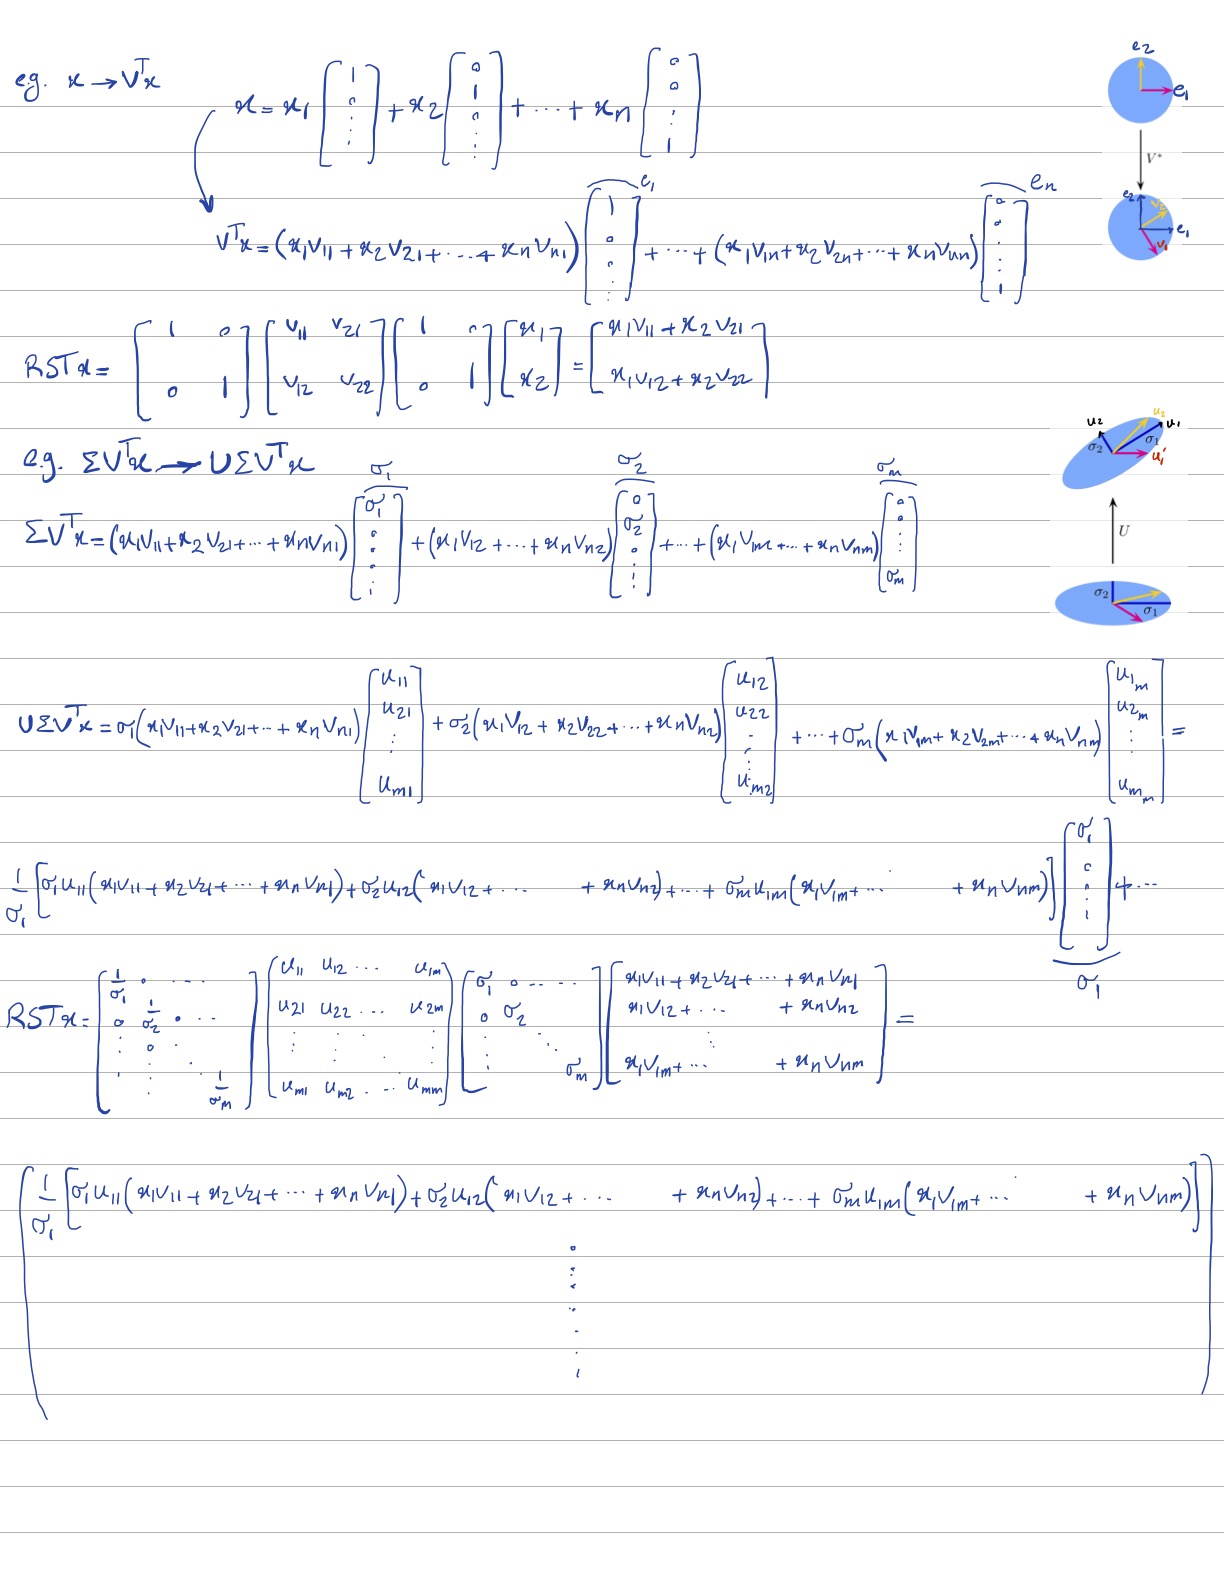 e.g. x → Vᵀx
x = x₁ [1 0 ⋮] + x₂ [0 1 0 ⋮] + ⋯ + xₙ [0 0 ⋮ 1]
e2
e1
V*
e2 v2 e1 v1
Vᵀx = (x₁V₁₁ + x₂V₂₁ + ⋯ + xₙVₙ₁) [1 0 0 ⋮] e₁ + ⋯ + (x₁V₁ₙ + x₂V₂ₙ + ⋯ + xₙVₙₙ) [0 0 ⋮ 1] eₙ
RSTx = [1 0; 0 1] [V₁₁ V₂₁; V₁₂ V₂₂] [1 0; 0 1] [x₁; x₂] = [x₁V₁₁ + x₂V₂₁; x₁V₁₂ + x₂V₂₂]
e.g. ΣVᵀx → UΣVᵀx
u2 u2 u1
σ2 σ1 u1'
U
σ2 σ1
ΣVᵀx = (x₁V₁₁ + x₂V₂₁ + ⋯ + xₙVₙ₁) [σ₁ 0 0 ⋮] σ₁ + (x₁V₁₂ + ⋯ + xₙVₙ₂) [0 σ₂ 0 ⋮] σ₂ + ⋯ + (x₁V₁ₘ + ⋯ + xₙVₙₘ) [0 0 ⋮ σₘ] σₘ
UΣVᵀx = σ₁(x₁V₁₁ + x₂V₂₁ + ⋯ + xₙVₙ₁) [u₁₁ u₂₁ ⋮ uₘ₁] + σ₂(x₁V₁₂ + x₂V₂₂ + ⋯ + xₙVₙ₂) [u₁₂ u₂₂ ⋮ uₘ₂] + ⋯ + σₘ(x₁V₁ₘ + x₂V₂ₘ + ⋯ + xₙVₙₘ) [u₁ₘ u₂ₘ ⋮ uₘₘ] =
1/σ₁ [σ₁u₁₁(x₁V₁₁ + x₂V₂₁ + ⋯ + xₙVₙ₁) + σ₂u₁₂(x₁V₁₂ + ⋯ + xₙVₙ₂) + ⋯ + σₘu₁ₘ(x₁V₁ₘ + ⋯ + xₙVₙₘ)] [σ₁ 0 0 ⋮] σ₁ + ⋯
RSTx = [1/σ₁ 0 ⋯; 0 1/σ₂ 0 ⋯; ⋮ 0 ⋱; 1/σₘ] [u₁₁ u₁₂ ⋯ u₁ₘ; u₂₁ u₂₂ ⋯ u₂ₘ; ⋮ ⋮ ⋮; uₘ₁ uₘ₂ ⋯ uₘₘ] [σ₁ 0 ⋯; 0 σ₂; ⋮ ⋱; σₘ] [x₁V₁₁ + x₂V₂₁ + ⋯ + xₙVₙ₁; x₁V₁₂ + ⋯ + xₙVₙ₂; ⋮; x₁V₁ₘ + ⋯ + xₙVₙₘ] =
[1/σ₁ [σ₁u₁₁(x₁V₁₁ + x₂V₂₁ + ⋯ + xₙVₙ₁) + σ₂u₁₂(x₁V₁₂ + ⋯ + xₙVₙ₂) + ⋯ + σₘu₁ₘ(x₁V₁ₘ + ⋯ + xₙVₙₘ)]
⋮ ]